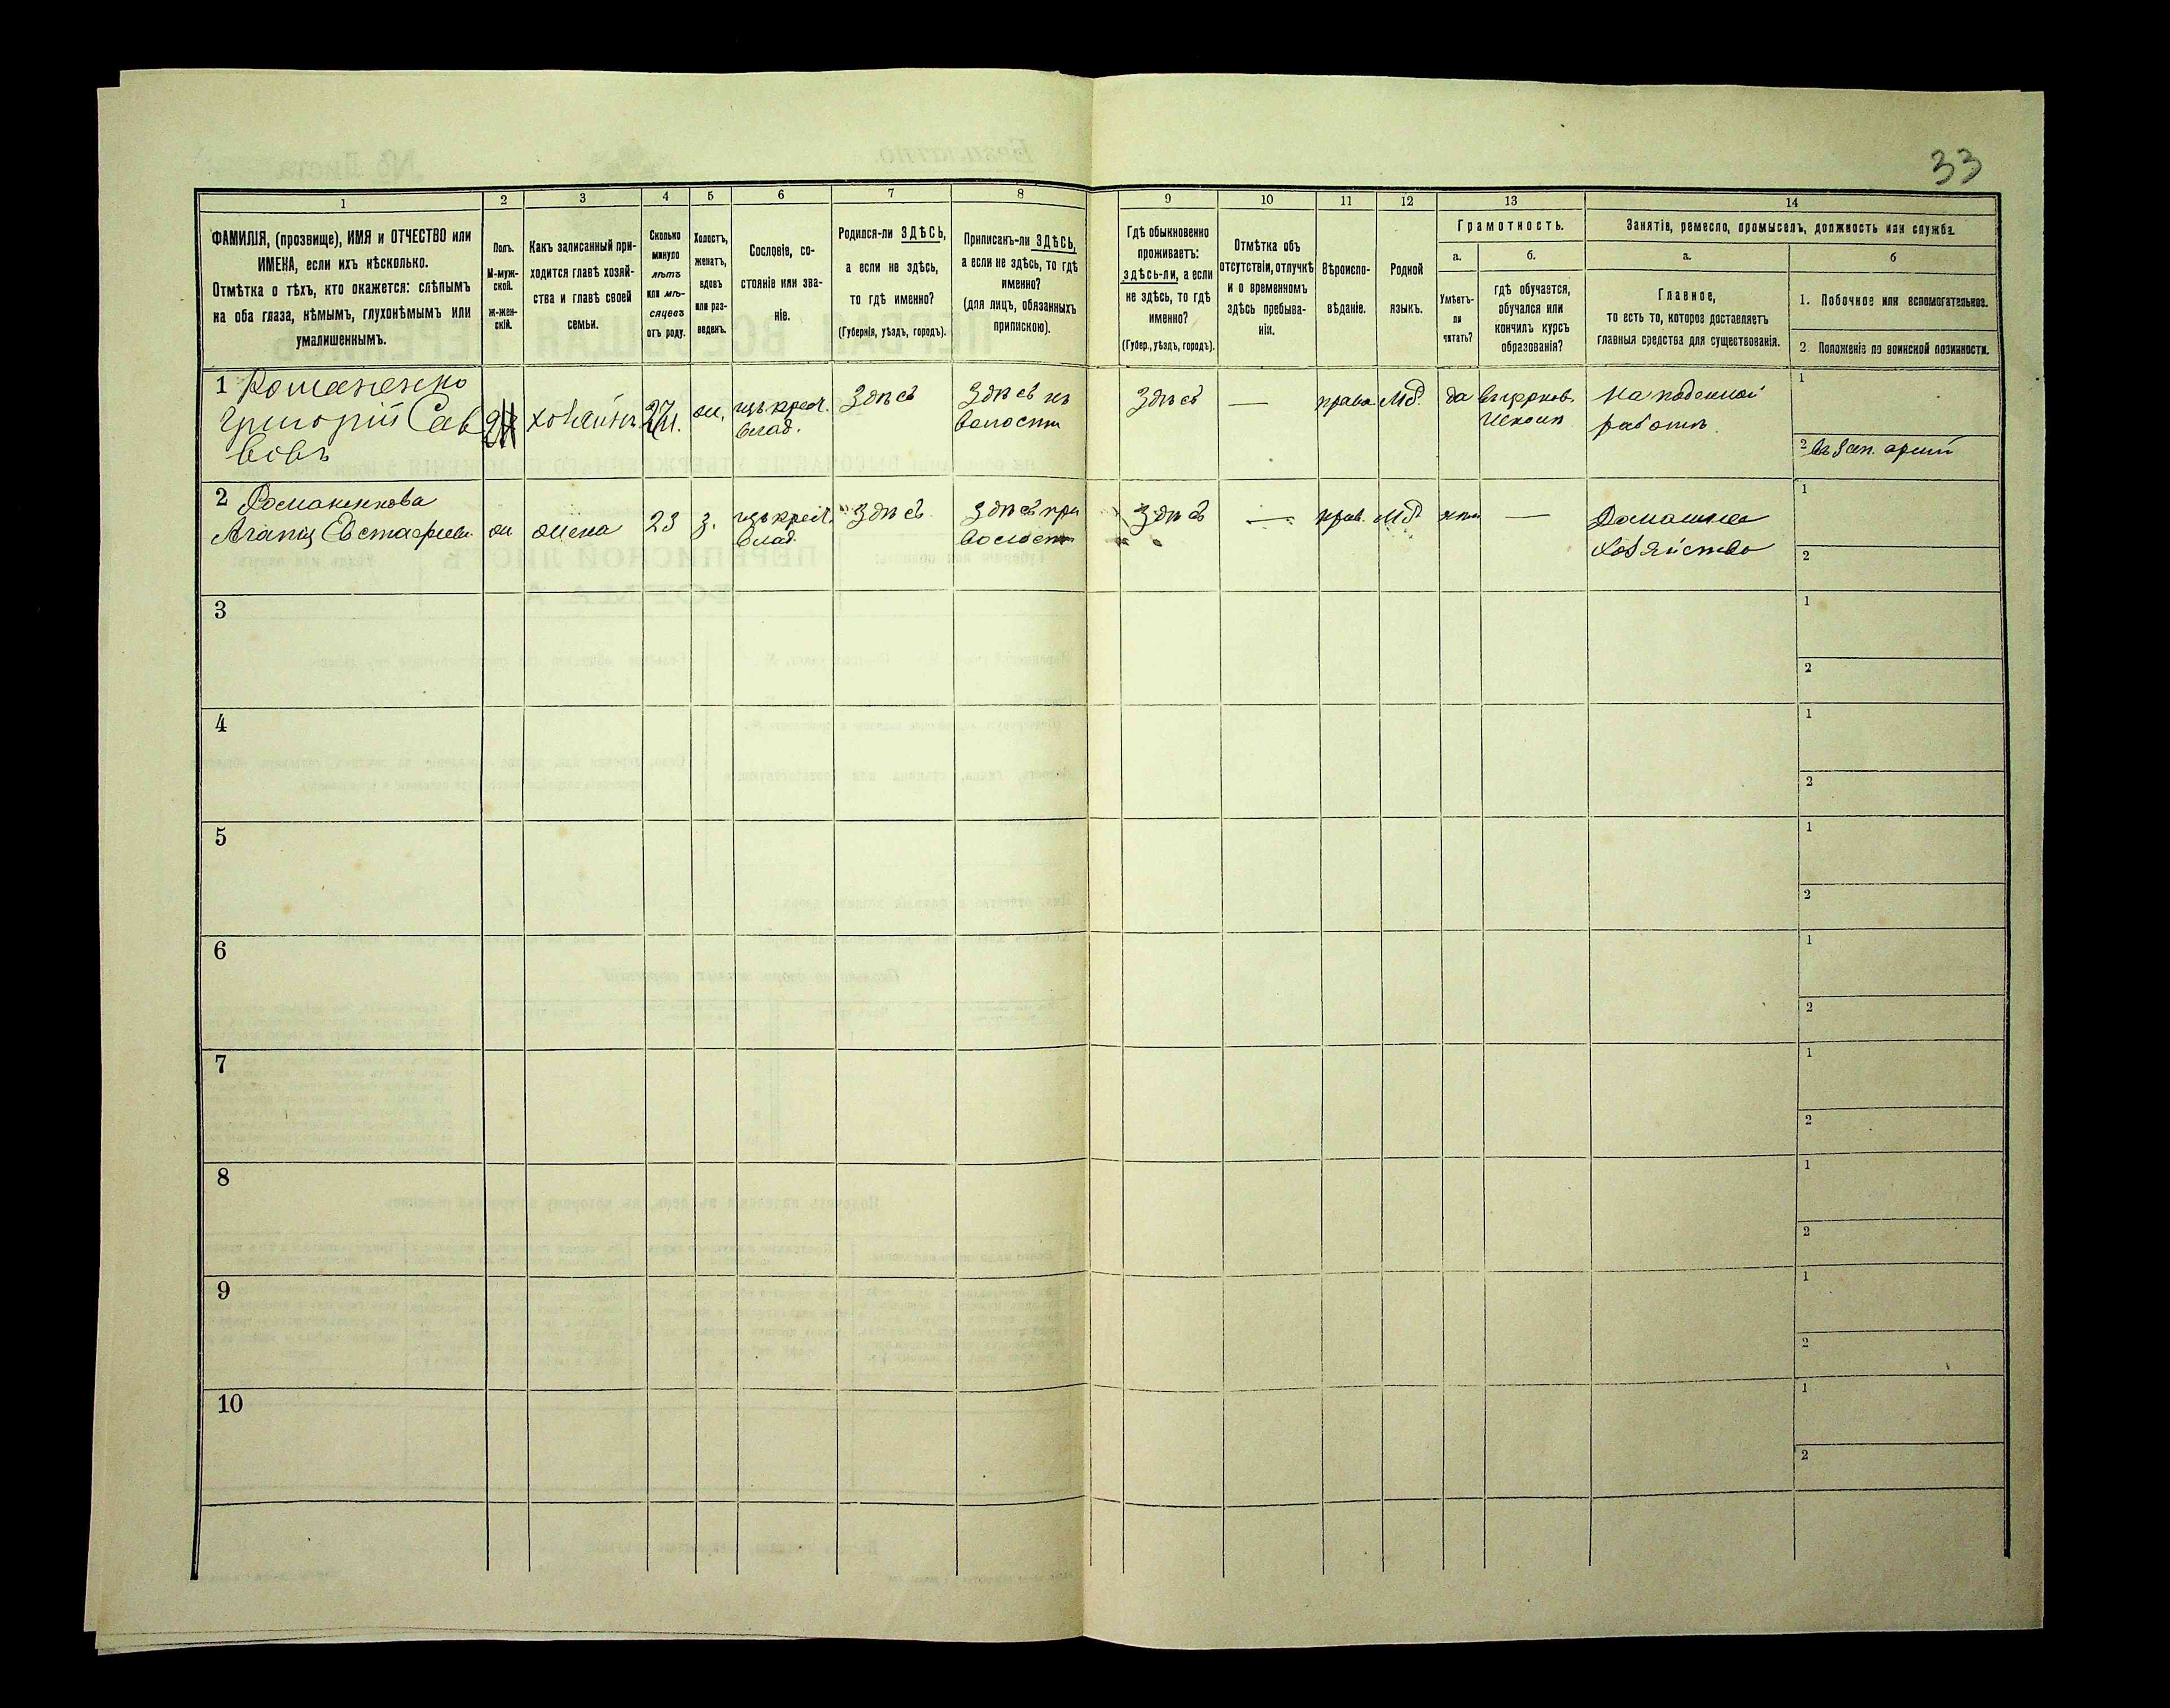 33
1
2
3
4
5
6
7
8
9
10
11
12
13
14
ФАМИЛІЯ, (прозвище), ИМЯ и ОТЧЕСТВО или
ИМЕНА, если ихъ нѣсколько.
Отмѣтка о тѣхъ, кто окажется: слѣпымъ
на оба глаза, нѣмымъ, глухонѣмымъ или
умалишеннымъ.
Полъ.
М-муж-
ской.
Ж-жен-
скій.
Какъ записанный при-
ходится главѣ хозяй-
ства и главѣ своей
семьи.
Сколько
минуло
лѣтъ
или мѣ-
сяцевъ
отъ роду.
Холостъ,
женатъ,
вдовъ
или раз-
веденъ.
Сословіе, со-
стояніе или зва-
ніе.
Родился-ли ЗДѢСЬ,
а если не здѣсь,
то гдѣ именно?
(Губернія, уѣздъ, городъ).
Приписанъ-ли ЗДѢСЬ,
а если не здѣсь, то гдѣ
именно?
(для лицъ, обязанныхъ
припискою).
Гдѣ обыкновенно
проживаетъ:
здѣсь-ли, а если
не здѣсь, то гдѣ
именно?
(Губер., уѣздъ, городъ).
Отмѣтка объ
отсутствіи, отлучкѣ
и о временномъ
здѣсь пребыва-
ніи.
Вѣроиспо-
вѣданіе.
Родной
языкъ.
Грамотность.
а.
Умѣетъ-
ли
читать?
б.
гдѣ обучается,
обучался или
кончилъ курсъ
образованія?
Занятія, ремесло, промыселъ, должность или служба.
а.
Главное,
то есть то, которое доставляетъ
главныя средства для существованія.
б
1. Побочное или вспомогательное.
2. Положеніе по воинской повинности.
1 Романенко
Григорій Сав
вовъ
хозяинъ
27
ж.
изъ крест.
влад.
Здѣсь
Здѣсь къ
волости
Здѣсь
—
правo
Мб.
да
въ церков.
школѣ
На поденной
работѣ
1
2 въ зап. арміи
2 Романенкова
Агапія Евстафіев.
ж
жена
23
з.
изъ крест.
влад.
Здѣсь
Здѣсь при
волости
Здѣсь
—
прав.
Мб
нѣтъ
—
Домашнее
хозяйство
1
2
3
1
2
4
1
2
5
1
2
6
1
2
7
1
2
8
1
2
9
1
2
10
1
2